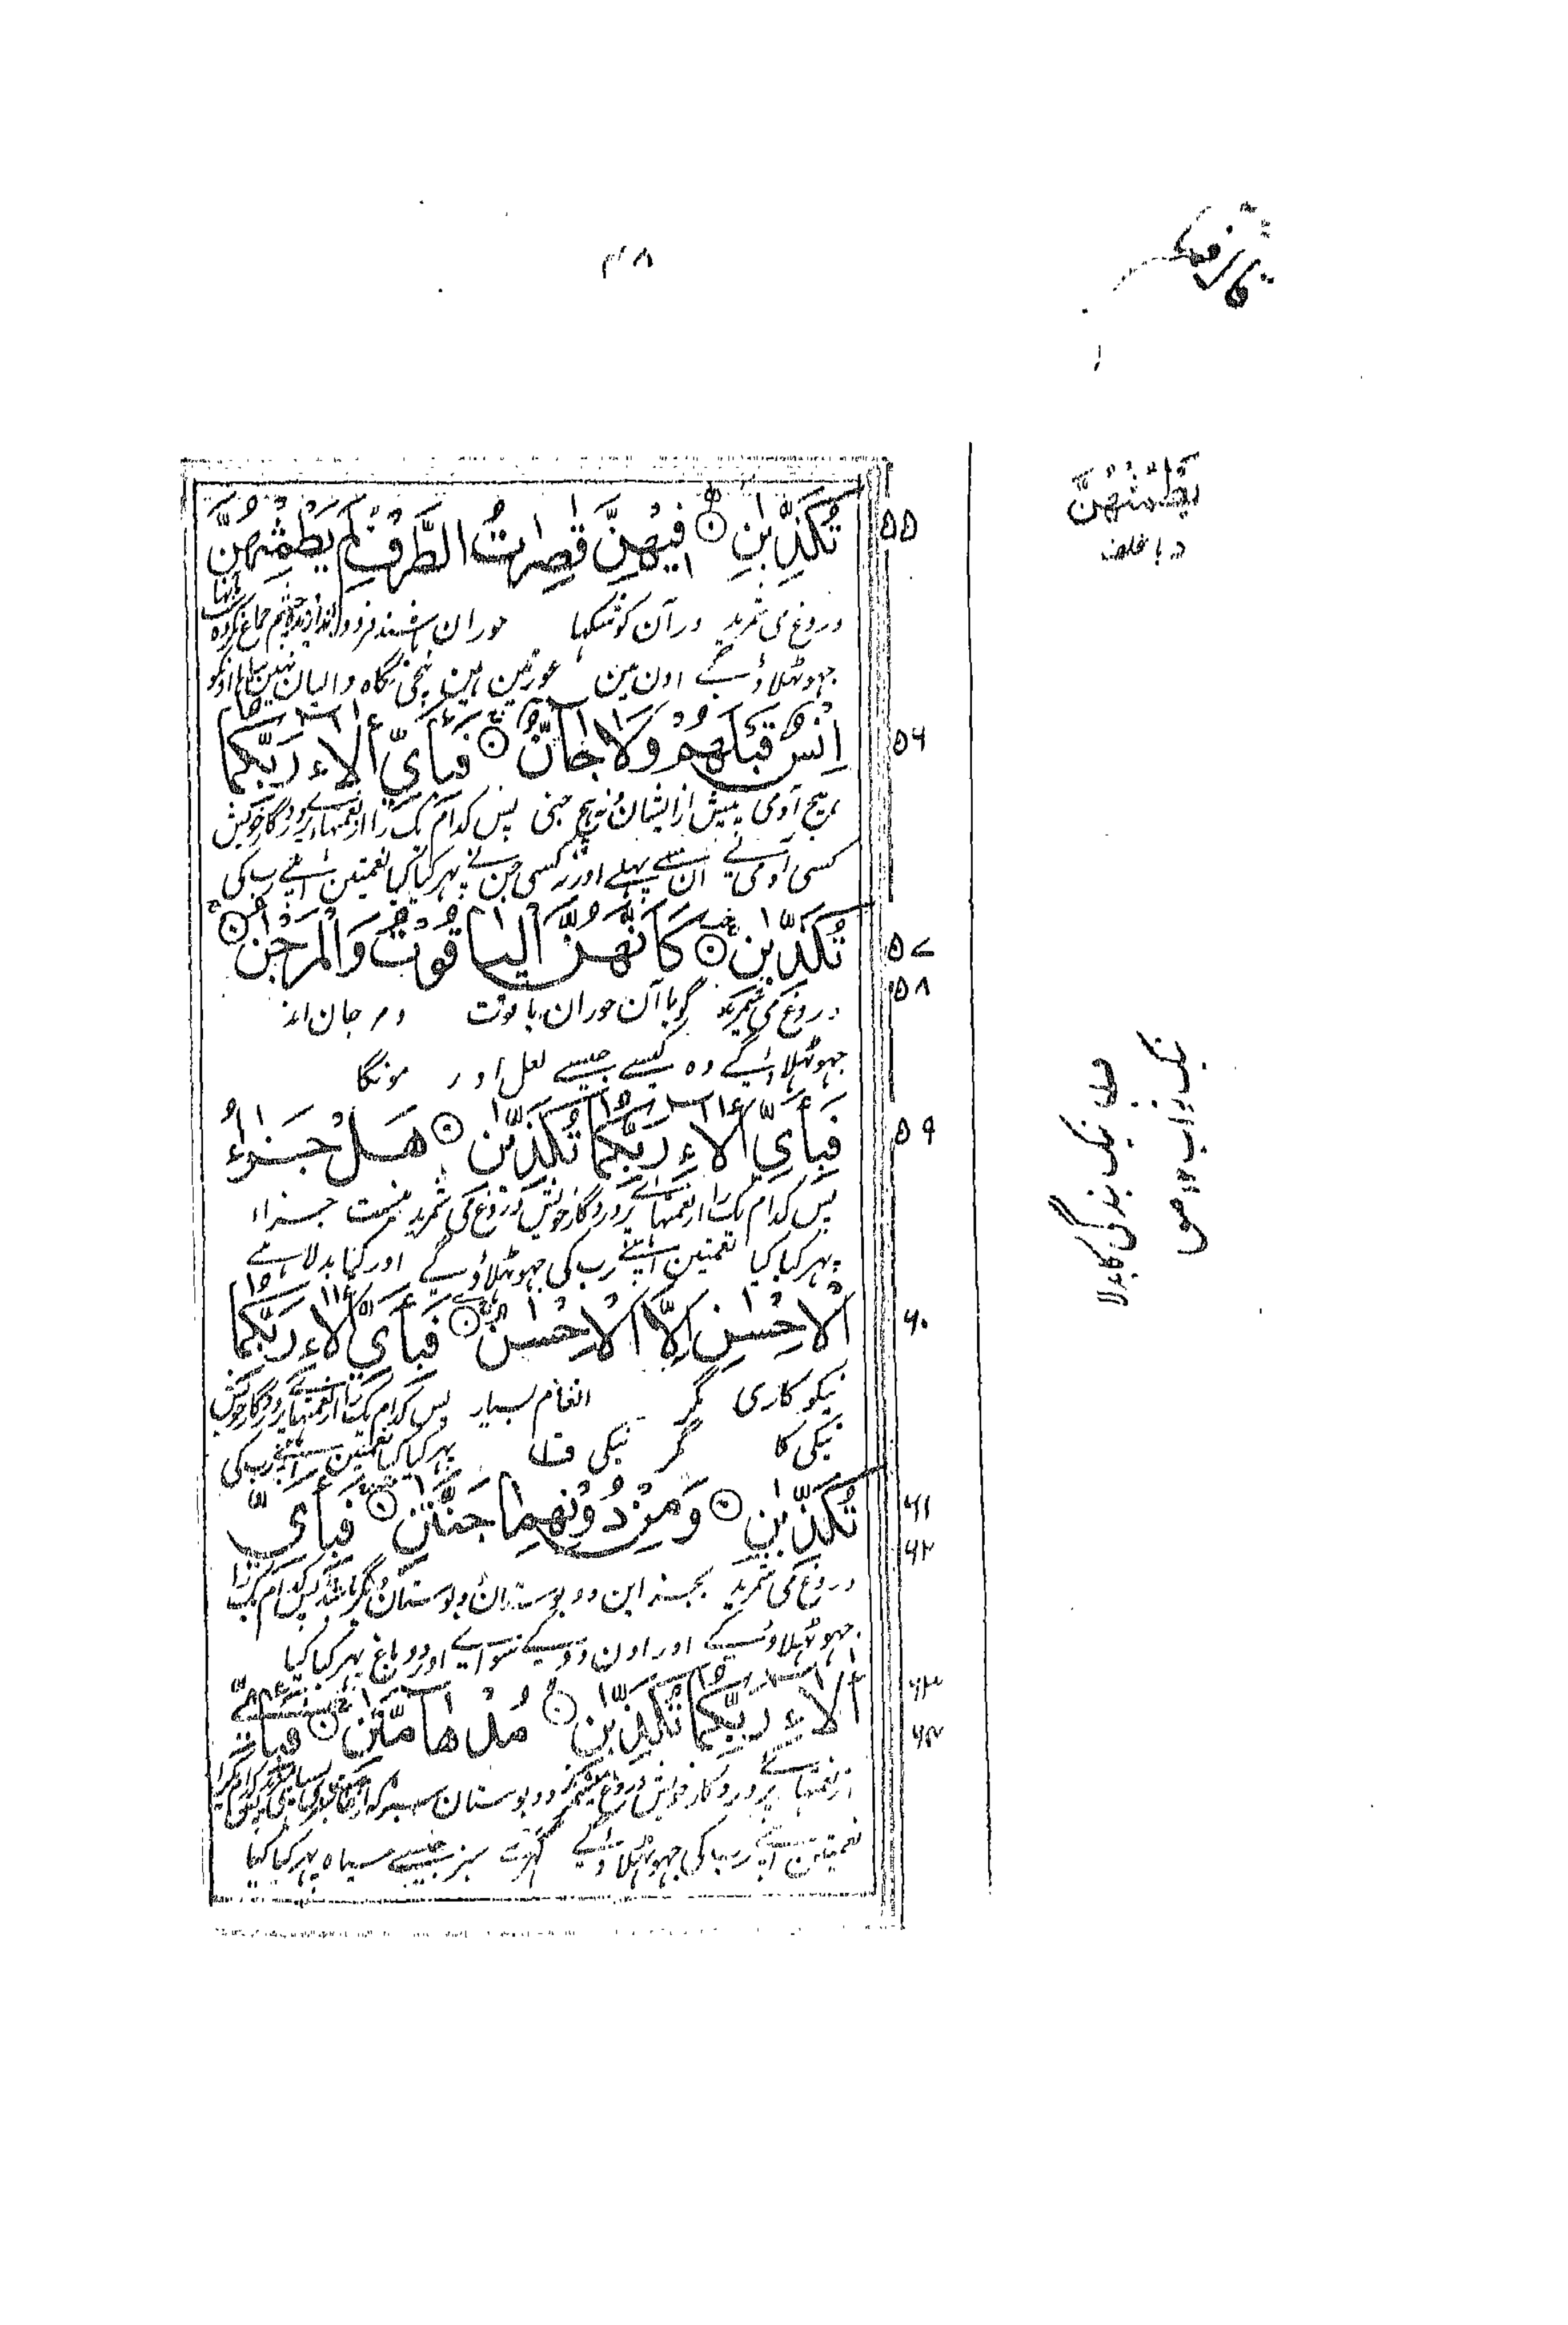 ۴۸
قال فما
تُكَذِّبٰنِ فِيْهِنَّ قٰصِرٰتُ الطَّرْفِ لَمْ يَطْمِثْهُنَّ
۵۵
دروغ می شمرید در آن کوشکها حوران باشند فرو اندازنده چشم جماع نکرده
جهوٹهلاؤگے اون مین عورتین ہین نیچی نگاه والیان نہین
اِنْسٌ قَبْلَهُمْ وَلَا جَآنٌّ فَبِاَيِّ اٰلَآءِ رَبِّكُمَا
۵۶
هیچ آدمی پیش از ایشان و نه هیچ جنی پس کدام یک را از نعمتهاے پروردگار خویش
کسی آدمی نے ان سے پہلے اور نہ کسی جن نے پہر کیا کیا نعمتین اپنے رب کی
تُكَذِّبٰنِ كَاَنَّهُنَّ الْيَاقُوْتُ وَالْمَرْجٰنُ
۵۷
۵۸
دروغ می شمرید گویا آن حوران یاقوت و مرجان اند
جهوٹهلاؤگے وه کیسے جیسے لعل اور مونگا
فَبِاَيِّ اٰلَآءِ رَبِّكُمَا تُكَذِّبٰنِ هَلْ جَزَآءُ
۵۹
پس کدام یک را از نعمتهاے پروردگار خویش دروغ می شمرید نیست جزاء
پہر کیا کیا نعمتین اپنے رب کی جهوٹهلاؤگے اور کیا بدلا ہے
الْاِحْسٰنِ اِلَّا الْاِحْسٰنُ فَبِاَيِّ اٰلَآءِ رَبِّكُمَا
۶۰
نیکوکاری مگر انعام بسیار پس کدام یک را از نعمتهاے پروردگار خویش
نیکی کا مگر نیکی ف پہر کیا کیا نعمتین اپنے رب کی
تُكَذِّبٰنِ وَمِنْ دُوْنِهِمَا جَنَّتٰنِ فَبِاَيِّ
۶۱
۶۲
دروغ می شمرید بجز این دو بوستان دو بوستان دیگر باشند پس کدام یک را
جهوٹهلاؤگے اور اون دو کے سواے اور دو باغ پہر کیا کیا
اٰلَآءِ رَبِّكُمَا تُكَذِّبٰنِ مُدْهَآمَّتٰنِ فَبِاَيِّ
۶۳
۶۴
از نعمتهاے پروردگار خویش دروغ می شمرید دو بوستان سبز که از
نعمتین اپنے رب کی جهوٹهلاؤگے گہرے سبز جیسے سیاه پہر کیا کیا
يَطْمُثْهُنَّ
ف نیک بندگی کا بدلا
نیک ثواب